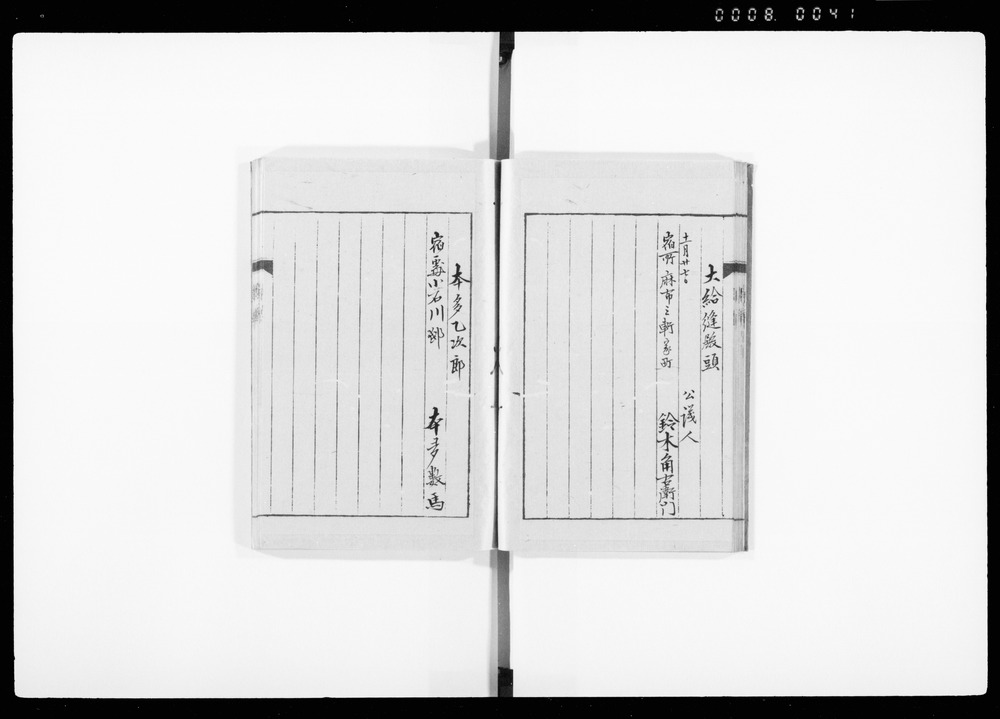 0008 0041
大給縫殿頭
十一月廿七日
宿所麻布三軒家町
公議人
鈴木角右衛門
本多乙次郎
宿処小石川邸
本多數馬